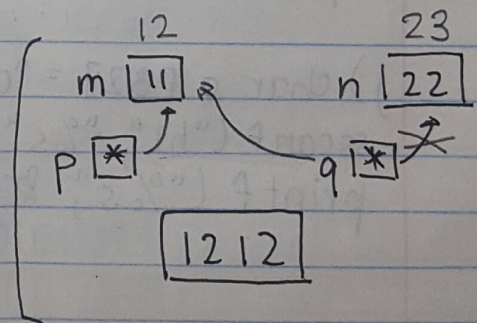 12 23
m 11 n 22
p * q *
12 12
char